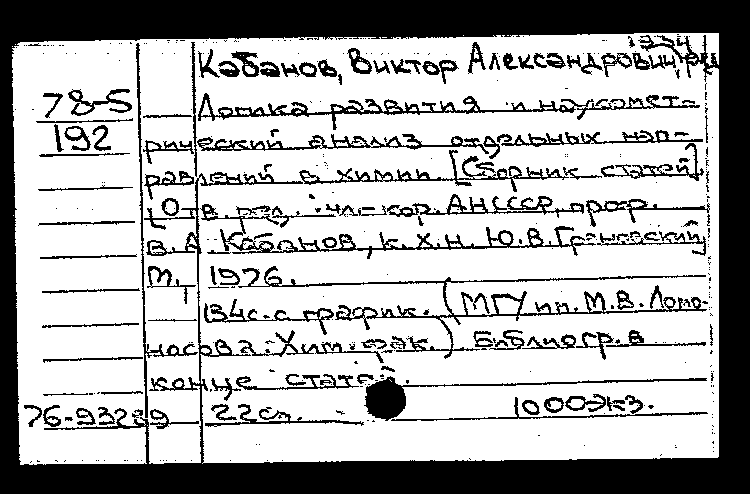 1934
Кабанов, Виктор Александрович, ред
78-5
Логика развития и наукомет-
192
рический анализ отдельных нап-
равлений в химии [Сборник статей].
[Отв. ред. чл.-кор. АНСССР, проф.
В.А. Кабанов, к.х.н. Ю.В. Грановский]
М., 1976.
134с. с график. (МГУ им. М.В. Ломо-
носова. Хим. фак.) Библиогр. в
конце статей.
76-93289 22см. - 1000экз.